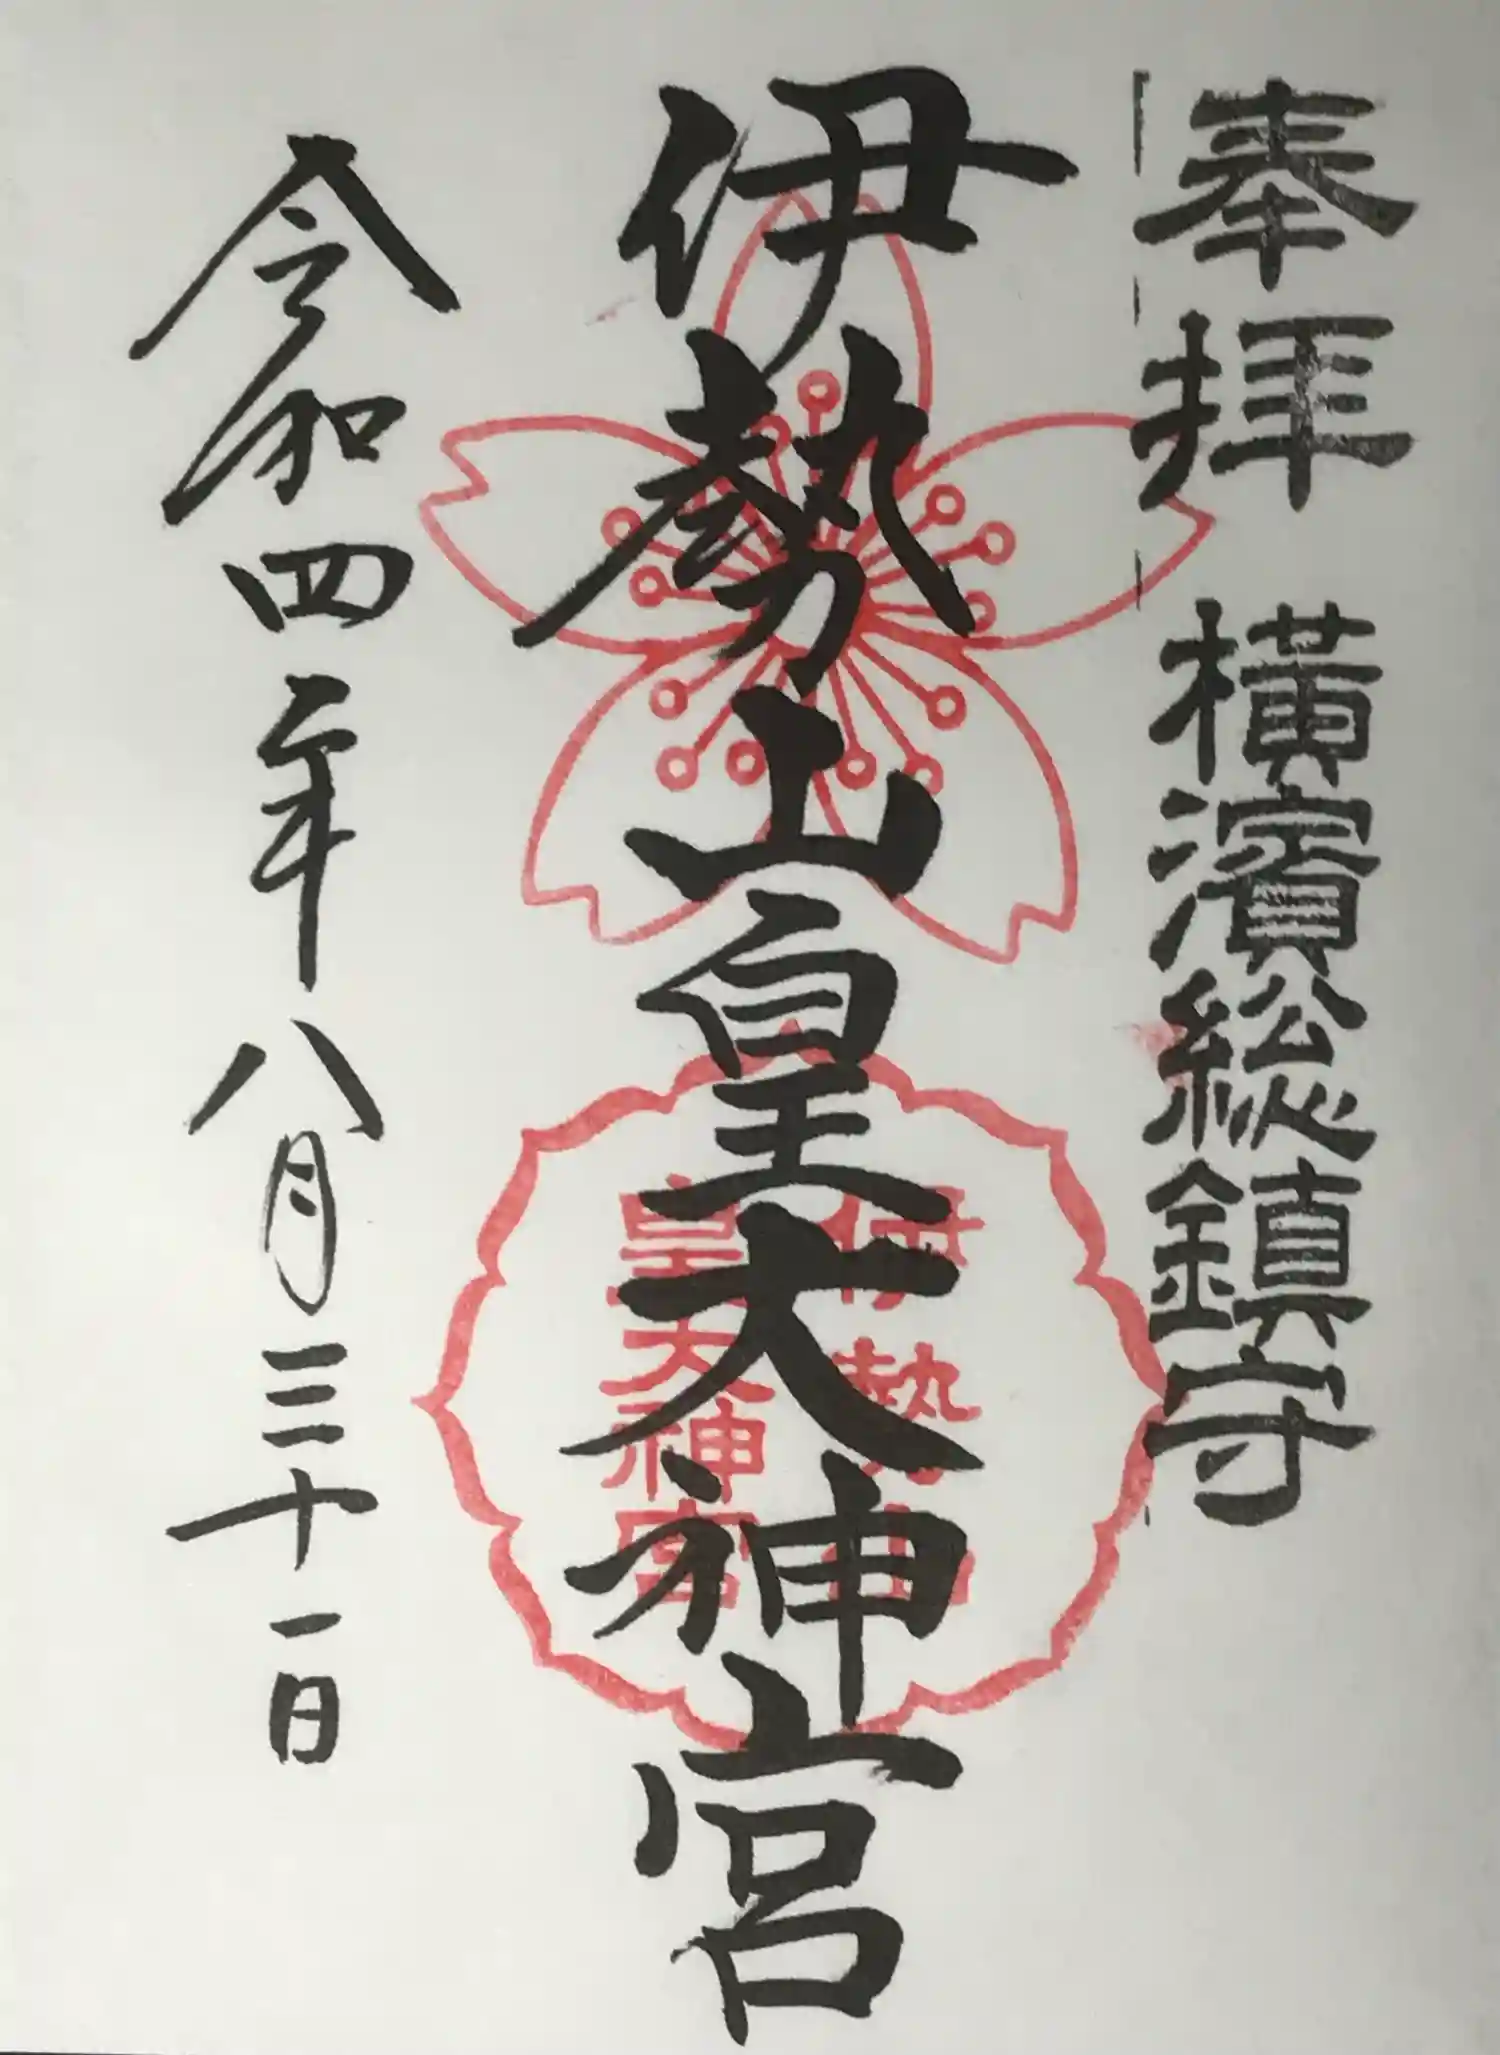 奉拝 横濱総鎮守
伊勢山皇大神宮
伊勢山
皇大神宮
令和四年八月三十一日